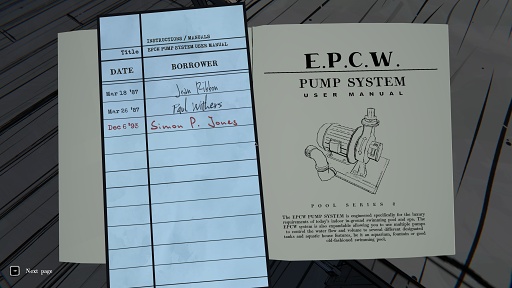 INSTRUCTIONS / MANUALS
Title EPCW PUMP SYSTEM USER MANUAL
DATE BORROWER
Mar 18 '87 Jean Ribbon
Mar 26 '87 Paul Withers
Dec 6 '93 Simon P. Jones
E.P.C.W.
PUMP SYSTEM
USER MANUAL
POOL SERIES
The EPCW PUMP SYSTEM is engineered specifically for the luxury
requirements of today's indoor in-ground swimming pool and spa. The
EPCW system is also expandable allowing you to use multiple pumps
to control the water flow and volume to several different designated
tanks and aquatic house features, be it an aquarium, fountain or good
old-fashioned swimming pool.
Next page